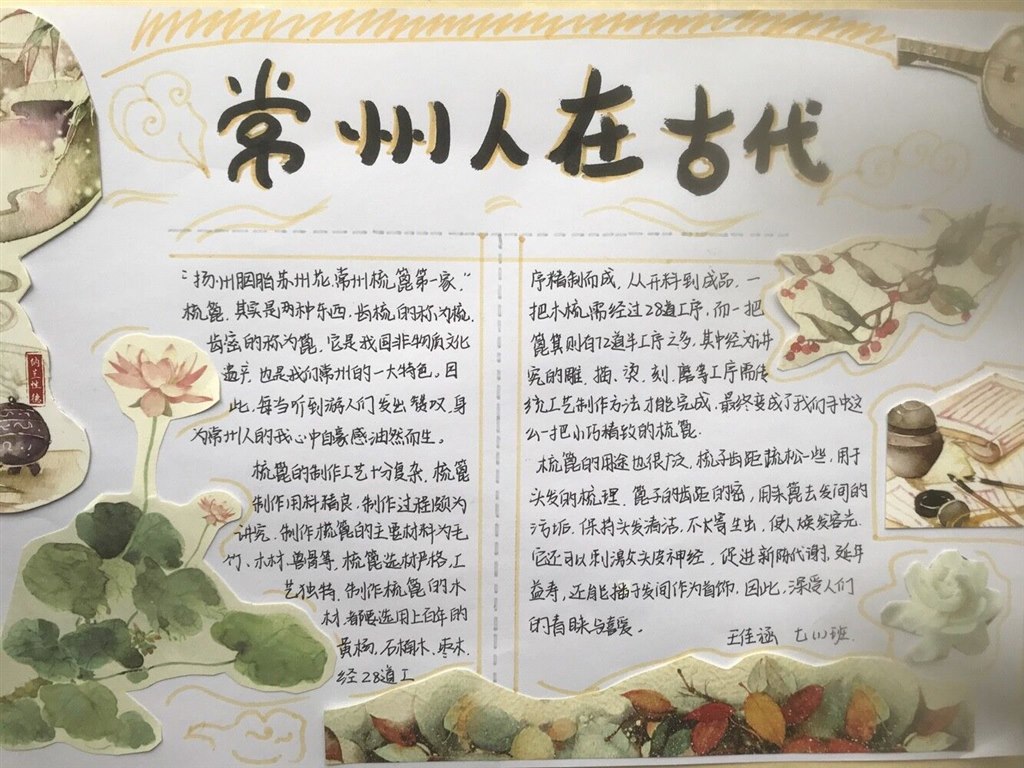 常州人在古代
"扬州胭脂苏州花,常州梳篦第一家."
梳篦,其实是两种东西,齿梳的称为梳,
齿密的称为篦,它是我国非物质文化
遗产,也是我们常州的一大特色。因
此,每当听到游人们发出赞叹,身
为常州人的我心中自豪感油然而生。
梳篦的制作工艺十分复杂,梳篦
制作用料精良,制作过程颇为
讲究,制作梳篦的主要材料为毛
竹、木材、兽骨等,梳篦选材严格,工
艺独特,制作梳篦的木
材,都要选用上百年的
黄杨,石楠木,枣木.
经28道工
序精制而成,从开料到成品,一
把木梳需经过28道工序,而一把
篦箕则有72道半工序之多,其中经为讲
究的雕、描、烫、刻、磨等工序需传
统工艺制作方法才能完成,最终变成了我们手中这
么一把小巧精致的梳篦.
梳篦的用途也很广,梳子齿距疏松一些,用于
头发的梳理,篦子的齿距的密,用来篦去发间的
污垢,保持头发清洁,不长寄生虫,使人焕发容光.
它还可以刺激头皮神经,促进新陈代谢,延年
益寿,还能插于发间作为首饰,因此,深受人们
的青睐与喜爱。
王佳涵 七(1)班.
纳兰性德